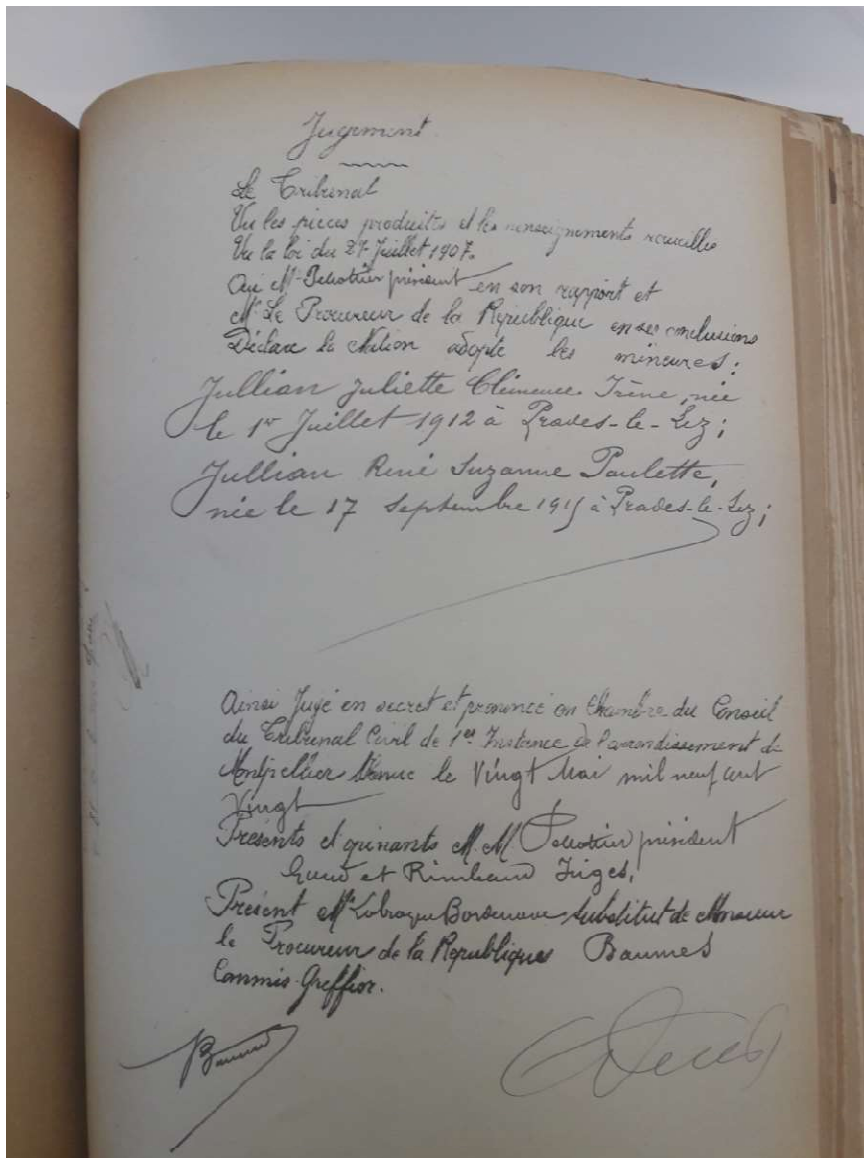 Jugement
Le Tribunal
Vu les pieces produites et les renseignements recueillis
Vu la loi du 27 Juillet 1907.
Oui Mr président en son rapport et
Mr Le Procureur de la République en ses conclusions
Déclare la Nation adopte les mineures:
Jullian Juliette Clémence Irène, née
le 1er Juillet 1912 à Prades-le-Lez;
Jullian René Suzanne Paulette,
née le 17 Septembre 1915 à Prades-le-Lez;
Ainsi Jugé en secret et prononcé en Chambre du Conseil
du Tribunal Civil de 1ere Instance de l'arrondissement de
Montpellier le Vingt Mai mil neuf cent
Vingt
Présents et M.M. président
et Rimbaud Juges.
Présent Mr substitut de Monsieur
le Procureur de la Républiques Baumes
Commis-Greffier.